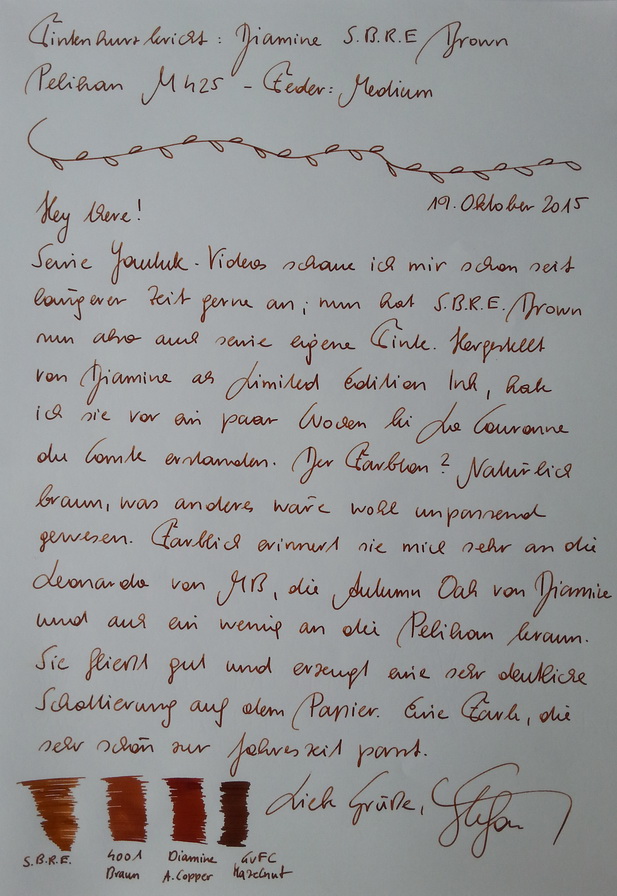 Tintenkurzbericht: Diamine S.B.R.E Brown
Pelikan M425 - Feder: Medium
19. Oktober 2015
Hey there!
Seine Youtube-Videos schaue ich mir schon seit
längerer Zeit gerne an; nun hat S.B.R.E. Brown
nun also auch seine eigene Tinte. Hergestellt
von Diamine als Limited Edition Ink, habe
ich sie vor ein paar Wochen bei La Couronne
du Comte erstanden. Der Farbton? Natürlich
braun, was anderes wäre wohl unpassend
gewesen. Farblich erinnert sie mich sehr an die
Leonardo von MB, die Autumn Oak von Diamine
und auch ein wenig an die Pelikan braun.
Sie fließt gut und erzeugt eine sehr deutliche
Schattierung auf dem Papier. Eine Farbe, die
sehr schön zur Jahreszeit passt.
Liebe Grüße, Stefan
S.B.R.E. 4001 Braun Diamine A.Copper GvFC Hazelnut